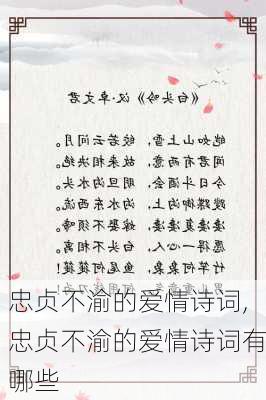 《白头吟》汉·卓文君
皑如山上雪，皎若云间月。
闻君有两意，故来相决绝。
今日斗酒会，明旦沟水头。
躞蹀御沟上，沟水东西流。
凄凄复凄凄，嫁娶不须啼。
愿得一心人，白头不相离。
竹竿何袅袅，鱼尾何簁簁！
忠贞不渝的爱情诗词,
忠贞不渝的爱情诗词有
哪些